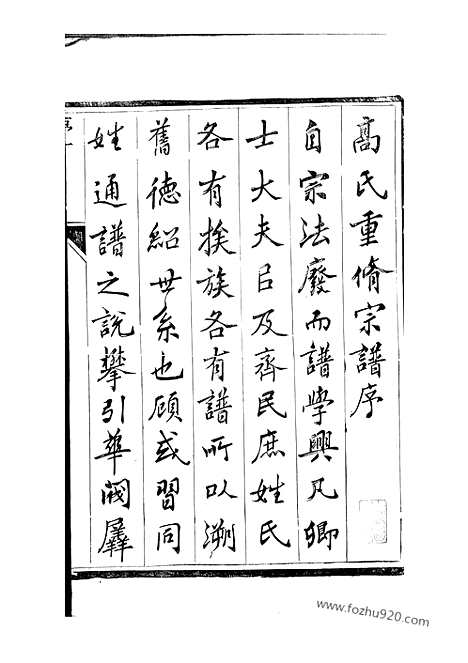 高氏重脩宗譜序
自宗法廢而譜學興凡卿
士大夫㠯及齊民庶姓氏
各有族族各有譜所以溯
舊德紹世系也顧或習同
姓通譜之說攀引華閥羼
www.fozhu920.com